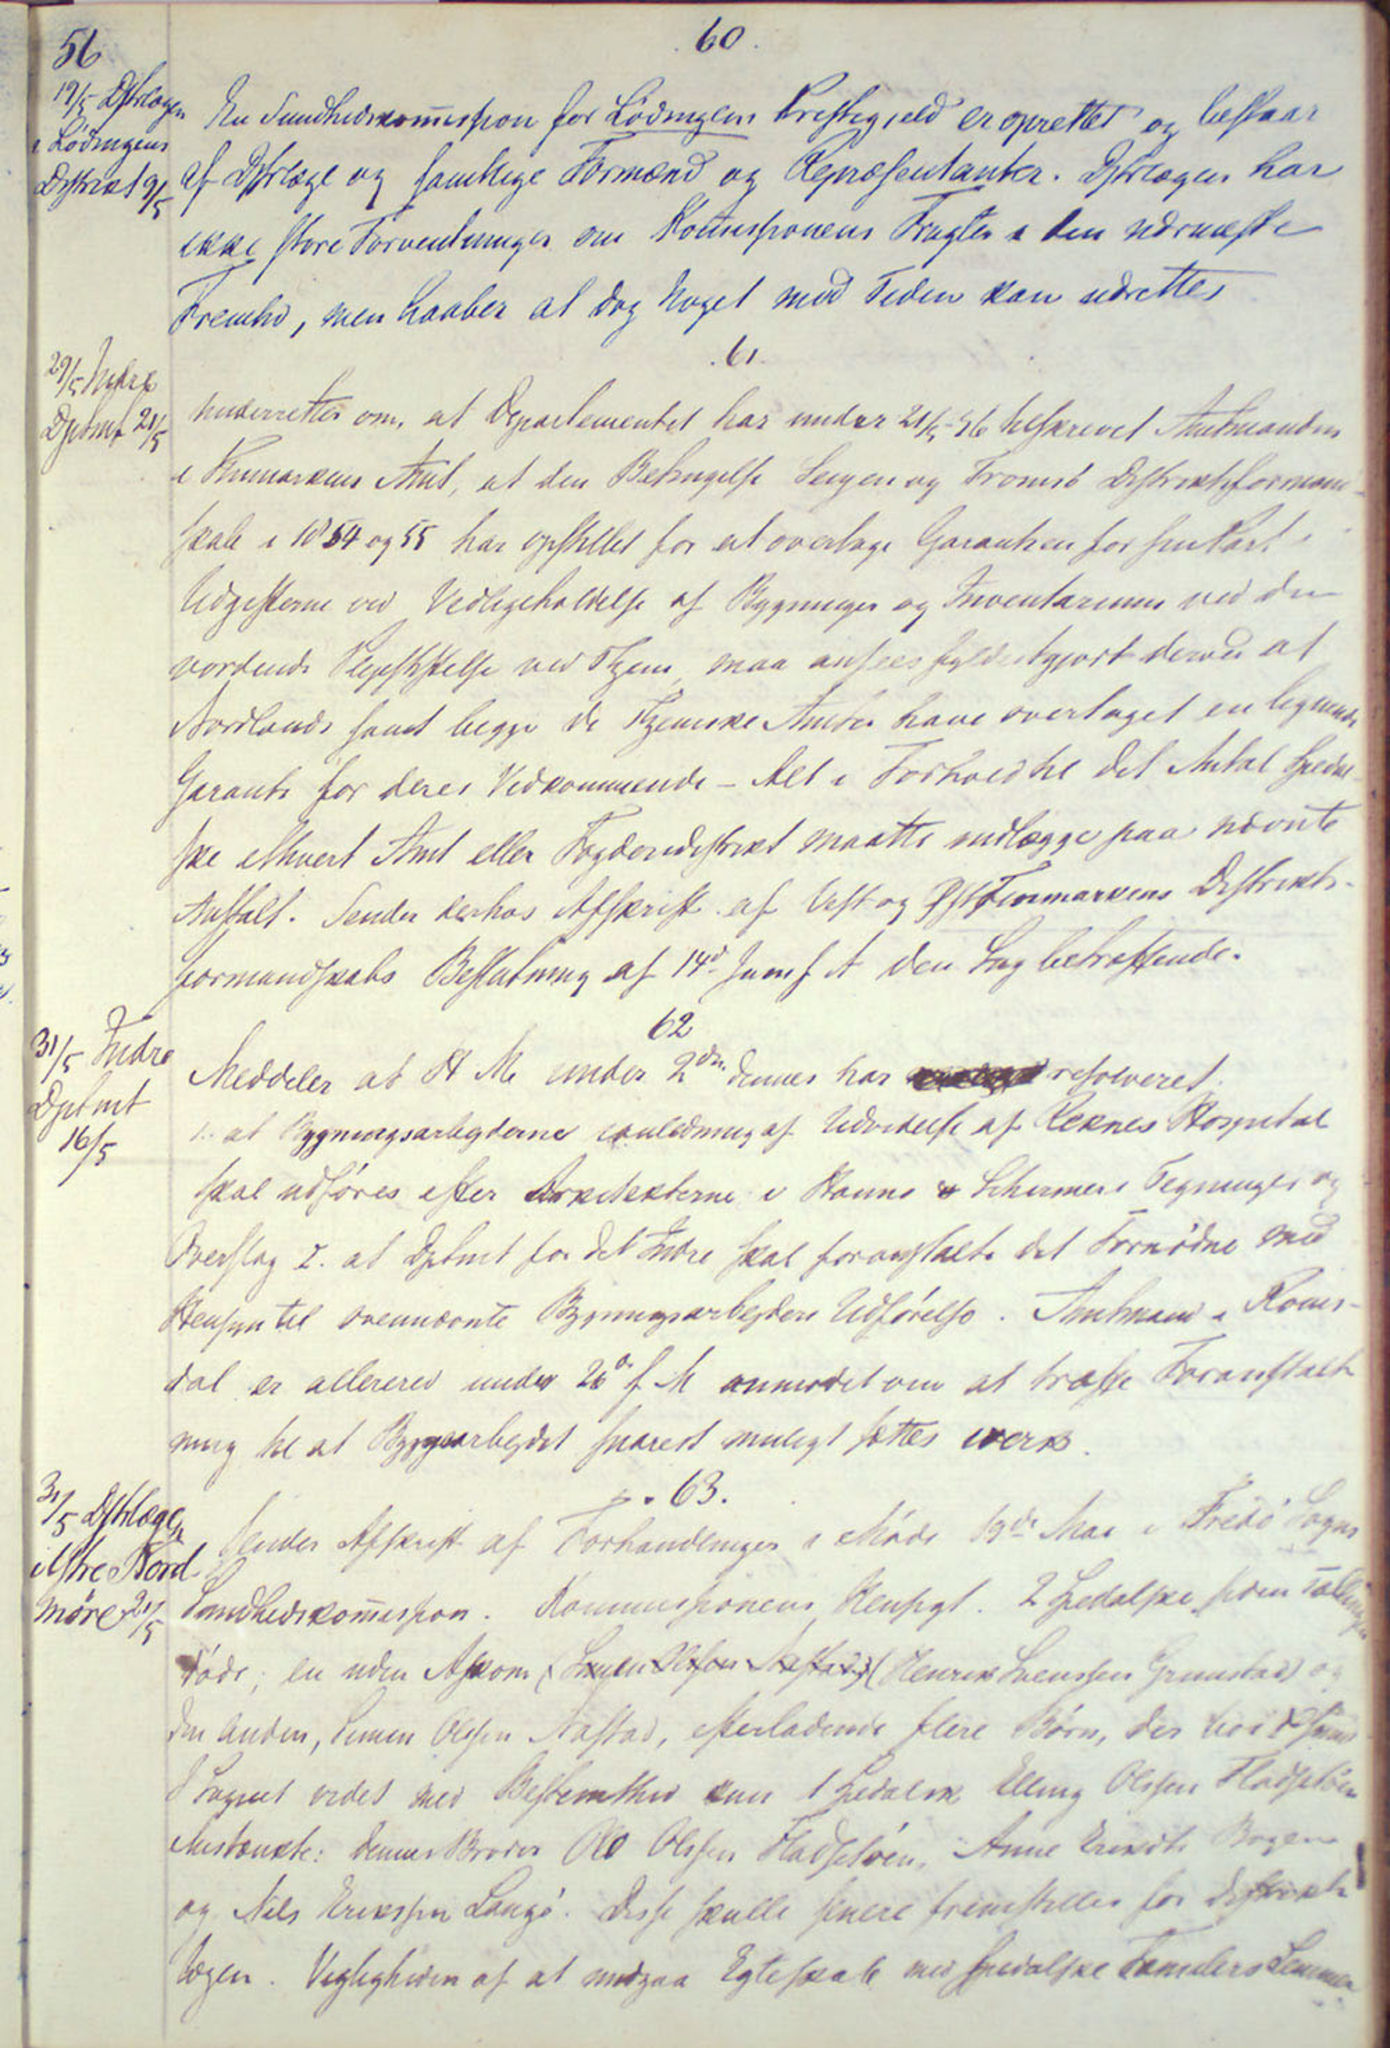 56
60.
19/5 Dstrlægen
i Lödingens
Distrikt 9/5
En Sundhedskommission for Lödingens Præstegjeld er oprettet og bestaar
af Dstrlæge og samtlige Formænd og Repræsentanter. Dstrlægen har
ikke store Forventninger om Kommissionens Frugter i den nærmeste
Fremtid, men haaber at dog noget med Tiden kan udrettes
61.
29/5 Indre
Dptmt 21/5
Underretter om, at Departementet har under 21/5 56 tilskrevet Amtmanden
i Finmarkens Amt, at den Betingelse Senjen og Tromsö Distriktsformand-
skab i 1854 og 55 har opstillet for at overtage Garantien for sin Part i
Udgifterne ved Vedligeholdelse af Bygninger og Inventarium ved den
vordende Pleiestiftelse ved Thjem, maa ansees fyldestgjort derved at
Nordlands samt begge de Thjemske Amter have overtaget en lignende
Garanti for deres Vedkommende - Alt i Forhold til det Antal Spedal-
ske ethvert Amt eller Fogderidistrikt maatte indlægge paa nævnte
Anstalt. Sender derhos Afskrift af Vest og Øst Finmarkens Distrikts-
formandskabs Beslutning af 14d Juni f A den Sag betræffende.
62
31/5 Indre
Dptmt
16/5
Meddeler at H M. under 2den dennes har resolveret
1. at Bygningsarbeiderne i anledning af Udvidelse af Reknes Hospital
skal udföres efter Arkitekterne v Hanno & Schirmers Tegninger og
Overslag 2. at Dptmt for det Indre skal foranstalte det Fornödne med
Hensyn til ovennævnte Bygningsarbeiders Udförelse. Amtmand i Roms-
dal er allerede under 26de f M anmodet om at træffe Foranstalt-
ning til at Byggearbeidet snarest muligt sættes i værk.
63.
31/5 Dstrlægen
i Ytre Nord
möre 21/5
Sender Afskrift af Forhandlinger i Möde 19de Mai i Fredö Sogns
Sundhedskommission. Kommissionens Hensigt. 2 Spedalske siden Tællingen
döde; en uden Afkom (Simen Olsen Aastad) (Henrik Svensen Grimstad) og
den anden, Simen Olsen Aastad, efterladende flere Börn, der bor
I Sognet vides med Bestemthed kun 1 Spedalsk Elling Olsen Fladsetöen
Mistænkte: dennes Broder Ole Olsen Fladsetöen, Anne Eriksdt Bogen
og Nils Eriksen Langö. Disse skulle senere fremstilles for Distrikts
lægen. Vigtigheden af at undgaa Egteskab med spedalske Familiers Lemmer